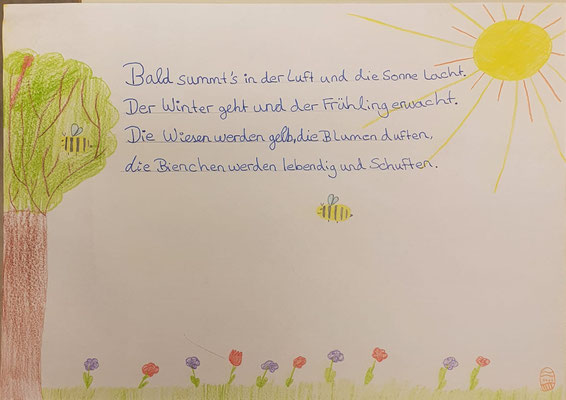 Bald summt's in der Luft und die Sonne Lacht.
Der Winter geht und der Frühling erwacht.
Die Wiesen werden gelb, die Blumen duften,
die Bienchen werden lebendig und Schuften.